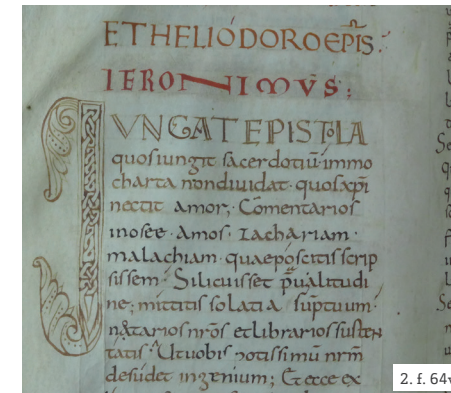 ET HELIODORO EPĪS.
IERONIMUS;
IUNGAT EPISTOLA
quos iungit sacerdotiū immo
charta non diuidat· quos xp̄i
nectit amor; Comentarios
in osee· amos· zachariam·
malachiam· quae poscitis scrip
sissem· Si licuisset p̄ualitudi
ne; mittitis solatia sūptuum·
notarios nr̄os et librarios susten
tatis· Ut uobis potissimū nr̄m
desudet ingenium; Et ecce ex
2. f. 64v